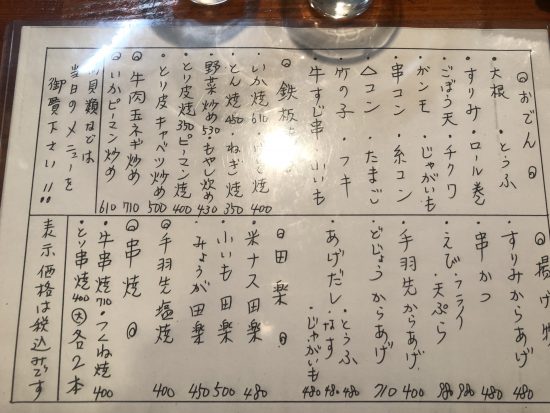 ◎おでん◎
・大根 ・とうふ
・すりみ ・ロール巻
・ごぼう天 ・チクワ
・ガンモ ・じゃがいも
・串コン ・糸コン
・△コン ・たまご
・竹の子 ・フキ
・牛すじ串 ・いいも
◎鉄板
・いか焼 610
・とん焼 450 ・ねぎ焼 350
・野菜炒め 530 ・もやし炒め 430
・とり皮焼 350 ・ピーマン焼 400
・とり皮キャベツ炒め 500
◎牛肉玉ネギ炒め 710
◎いかピーマン炒め 610
貝類などは
当日のメニューを
御覧下さい〃
◎揚げ物
・すりみからあげ 480
・串かつ 480
・えび・フライ 980 ・天ぷら 980
・手羽先からあげ 400
・どじょうからあげ 710
・あげだし・とうふ 480 ・なす 480 ・じゃがいも 480
◎田楽◎
・米ナス田楽 480
・小いも田楽 500
・みょうが田楽 450
◎手羽先塩焼 400
◎串焼◎
・牛串焼 710 ・つくね焼 400
・とり串焼 400 ㊅各2本
表示価格は税込みです